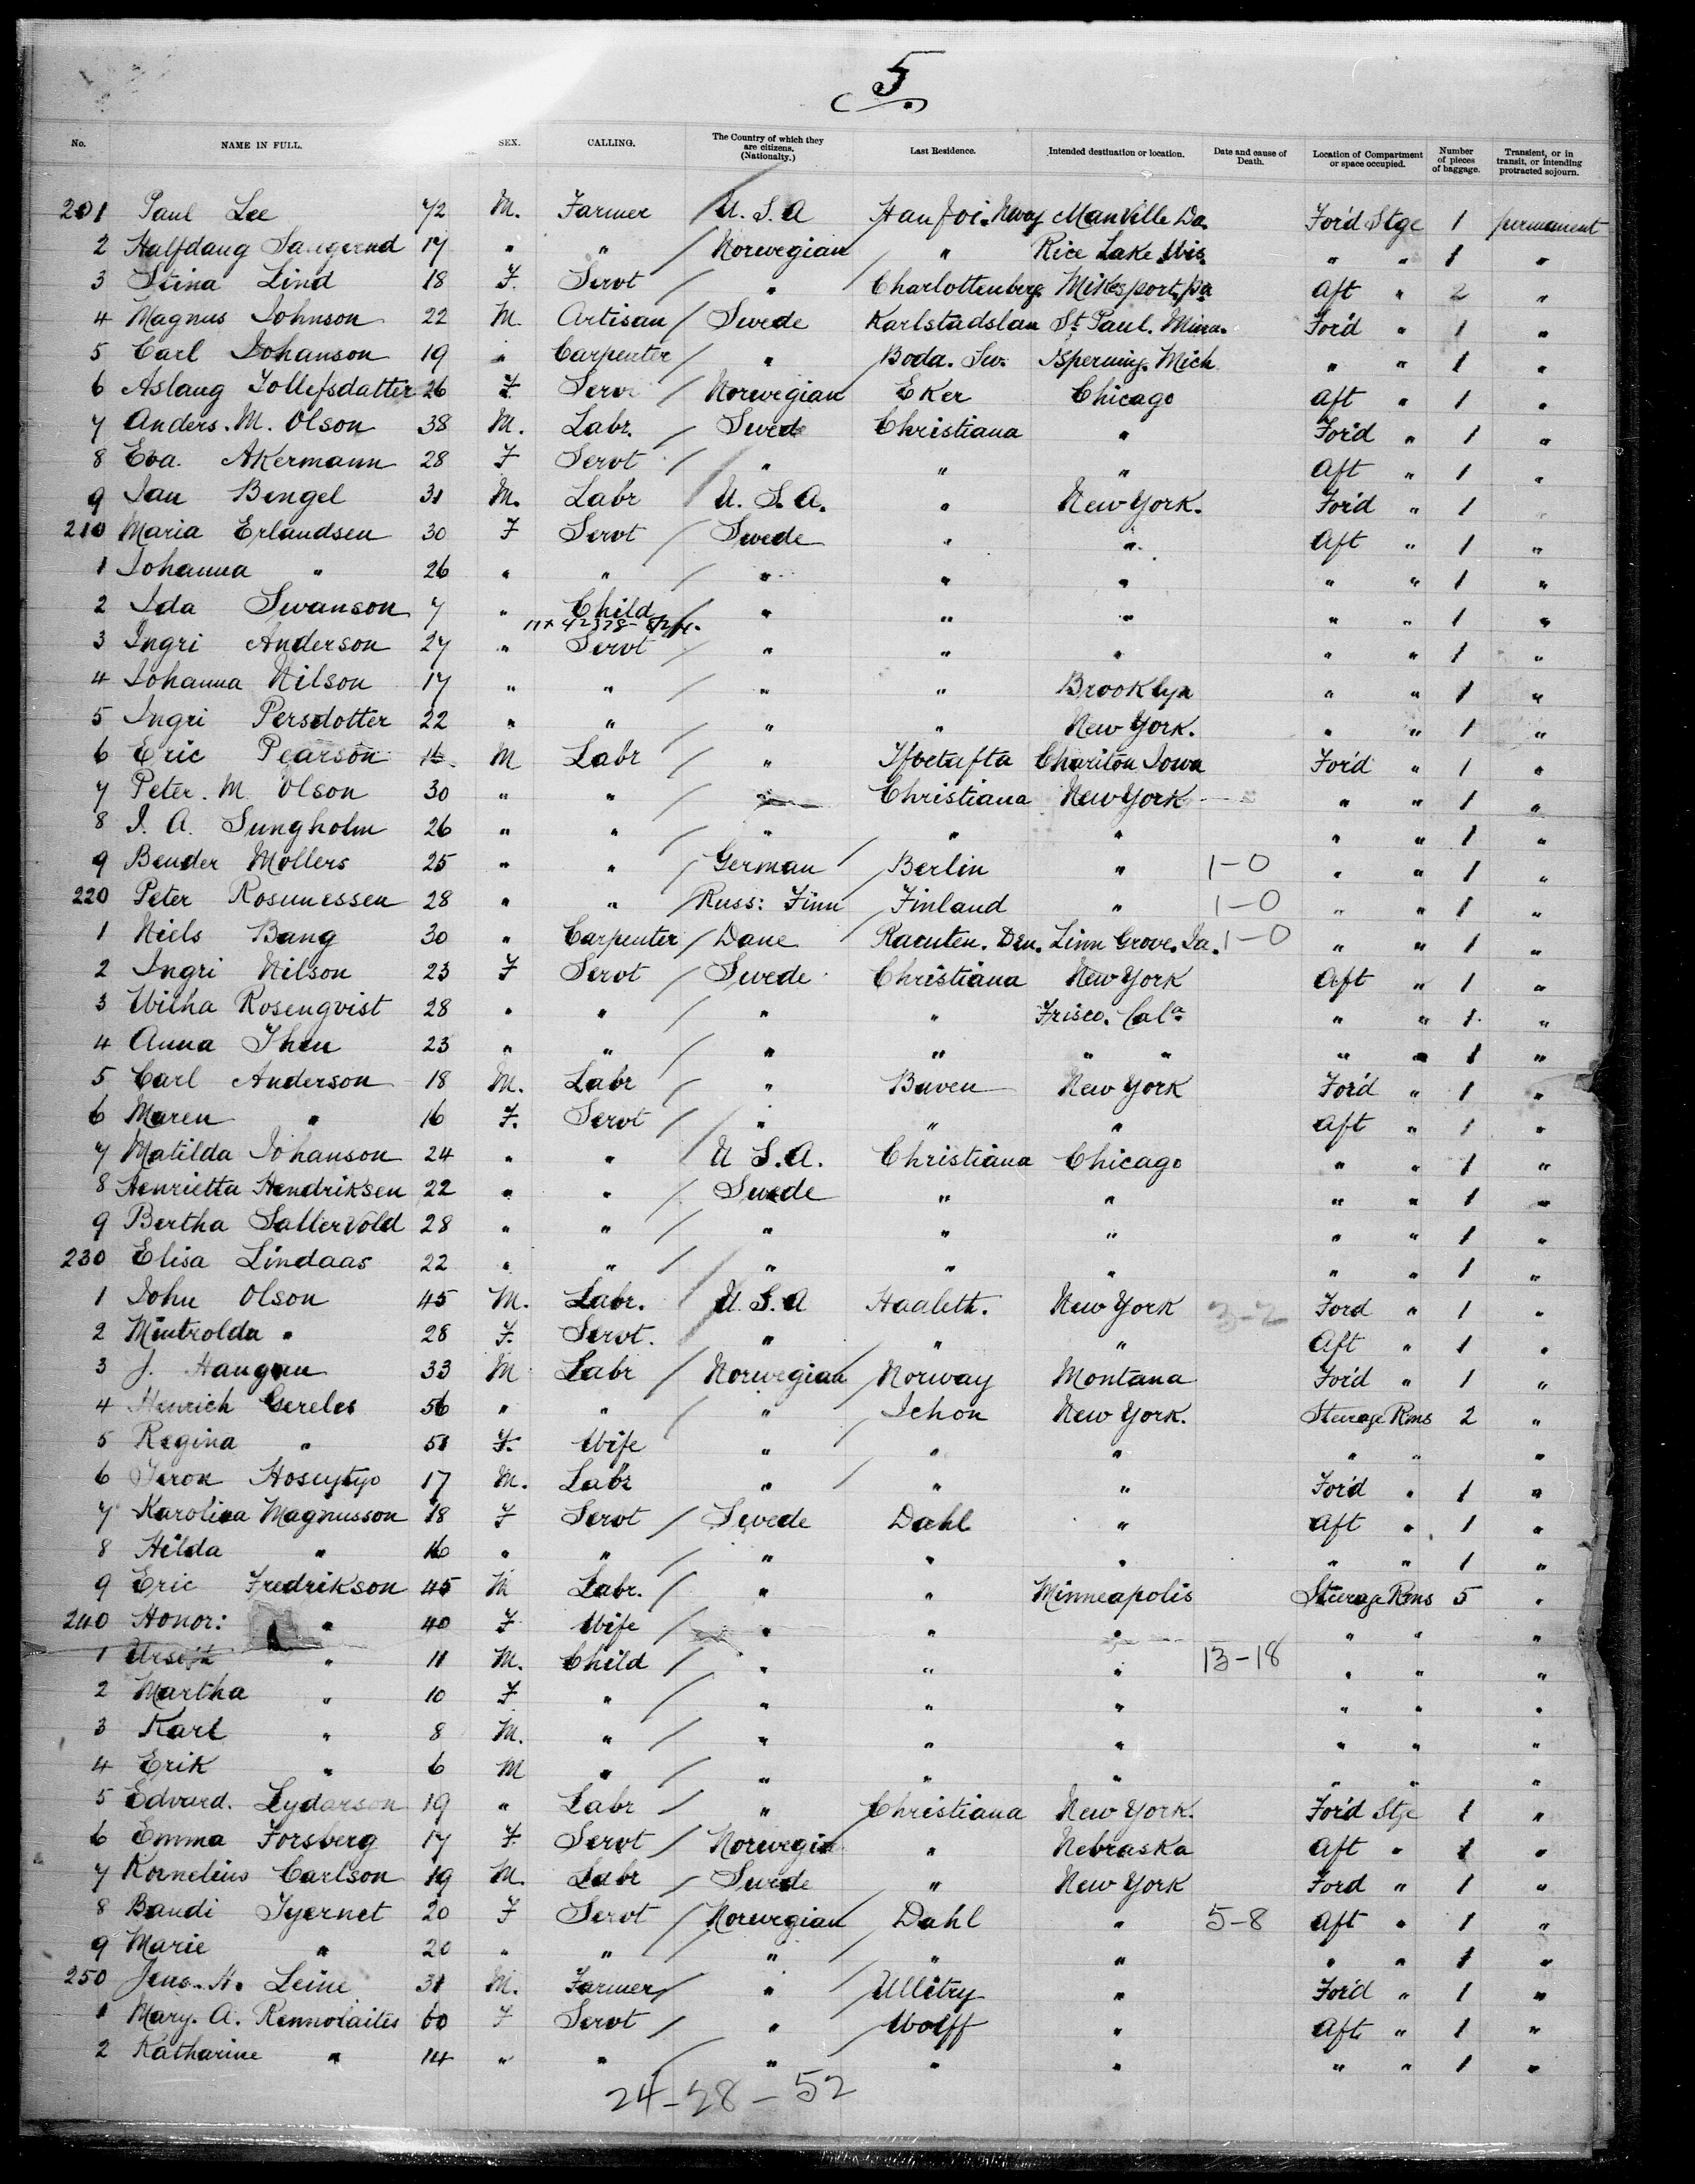 5.
No. NAME IN FULL. SEX. CALLING. The Country of which they are citizens. (Nationalty.) Last Residence. Intended destination or location. Date and cause of Death. Location of Compartment or space occupied. Number of pieces of baggage. Transient, or in transit, or intending protracted sojourn.
201 Paul Lee 42 M. Farmer / U. S. A Nway Manville Da. For'd Stge 1 permanent
2 Halfdang 17 " " / Norwegian / " Rice Lake Wis " " 1 "
3 Stina Lind 18 F. Servt / " / Charlottenberg Mikesport, Pa Aft " 2 "
4 Magnus Johnson 22 M. Artisan / Swede Karlstadslan St Paul. Minn. For'd " 1 "
5 Carl Johanson 19 " Carpenter / " Boda. Sw. Isperming. Mich " " 1 "
6 Aslaug Tollefsdatter 26 F. / Norwegian Eker Chicago Aft " 1 "
7 Anders. M. Olson 38 M. Labr. / Swede Christiana " For'd " 1 "
8 Eva. Akermann 28 F Servt / " " " Aft " 1 "
9 Jan Bengel 31 M. Labr / U. S. A. " New York. For'd " 1 "
210 Maria Erlandsen 30 F Servt / Swede " " Aft " 1 "
1 Johanna " 26 " " / " " " " " 1 "
2 Ida Swanson 7 " Child / " " " " " 1 "
3 Ingri Anderson 27 " Servt / " " " " " 1 "
4 Johanna Nilson 17 " " / " " Brooklyn " " 1 "
5 Ingri Persdotter 22 " " / " " New York. " " 1 "
6 Eric Pearson 16. M Labr / " Chariton Iowa For'd " 1 "
7 Peter. M Olson 30 " " / " Christiana New York " " 1 "
8 J. A. Sungholm 26 " " / " " " " " 1 "
9 Bender Mollers 25 " " / German / Berlin " 1-0 " " 1 "
220 Peter Rosumessen 28 " " / Russ: Finn / Finland " 1-0 " " 1 "
1 Niels Bang 30 " Carpenter / Dane Racuten. Den. Linn Grove. Ia. 1-0 " " 1 "
2 Ingri Nilson 23 F Servt / Swede Christiana New York Aft " 1 "
3 Wilha Rosenqvist 28 " " / " " Frisco. Cala " " 1 "
4 Anna Then 23 " " / " " " " " " 1 "
5 Carl Anderson 18 M. Labr / " Baven New York For'd " 1 "
6 Maren " 16 F. Servt / " " " Aft " 1 "
7 Matilda Johanson 24 " " U S. A. Christiana Chicago " " 1 "
8 Henrietta Hendriksen 22 " " / Swede " " " " 1 "
9 Bertha Sattervold 28 " " / " " " " " 1 "
230 Elisa Lindaas 22 " " / " " " " " 1 "
1 John Olson 45 M. Labr. / U. S. A Haaleth. New York 3-2 Ford " 1 "
2 Mintrolda " 28 F. Servt. " " " Aft " 1 "
3 J. Haugan 33 M Labr / Norwegian / Norway Montana For'd " 1 "
4 Henrich Gereles 56 " " / " / Ichon New York. Steerage Rms 2 "
5 Regina " 51 F. Wife " " " " " "
6 17 M. Labr " / " " For'd " 1 "
7 Karolina Magnusson 18 F Servt / Swede Dahl " Aft " 1 "
8 Hilda " 16 " " / " " " " " 1 "
9 Eric Fredrikson 45 M Labr. / " " Minneapolis Steerage Rms 5 "
240 Honor: " 40 F Wife " " " " " "
1 " 11 M. Child / " " " 13-18 " " "
2 Martha " 10 F " / " " " " " "
3 Karl " 8 M. " / " " " " " "
4 Erik " 6 M " / " " " " " "
5 Edvard. Lydarson 19 " Labr / " Christiana New York. For'd Stge 1 "
6 Emma Forsberg 17 F Servt / Norwegia " Nebraska Aft " 1 "
7 Kornelius Carlson 19 M. Labr / Swede " New York Ford " 1 "
8 Bandi Tyernet 20 F Servt / Norwegian / Dahl " 5-8 Aft " 1 "
9 Marie " 20 " " / " / " " " " 1 "
250 Jens. H. Leine 31 M. Farmer / " / Ullitry " For'd " 1 "
1 Mary. A. Rennolaites 60 F Servt / " / Wolff " Aft " 1 "
2 Katharine " 14 " " / " " " " " 1 "
24-28-52